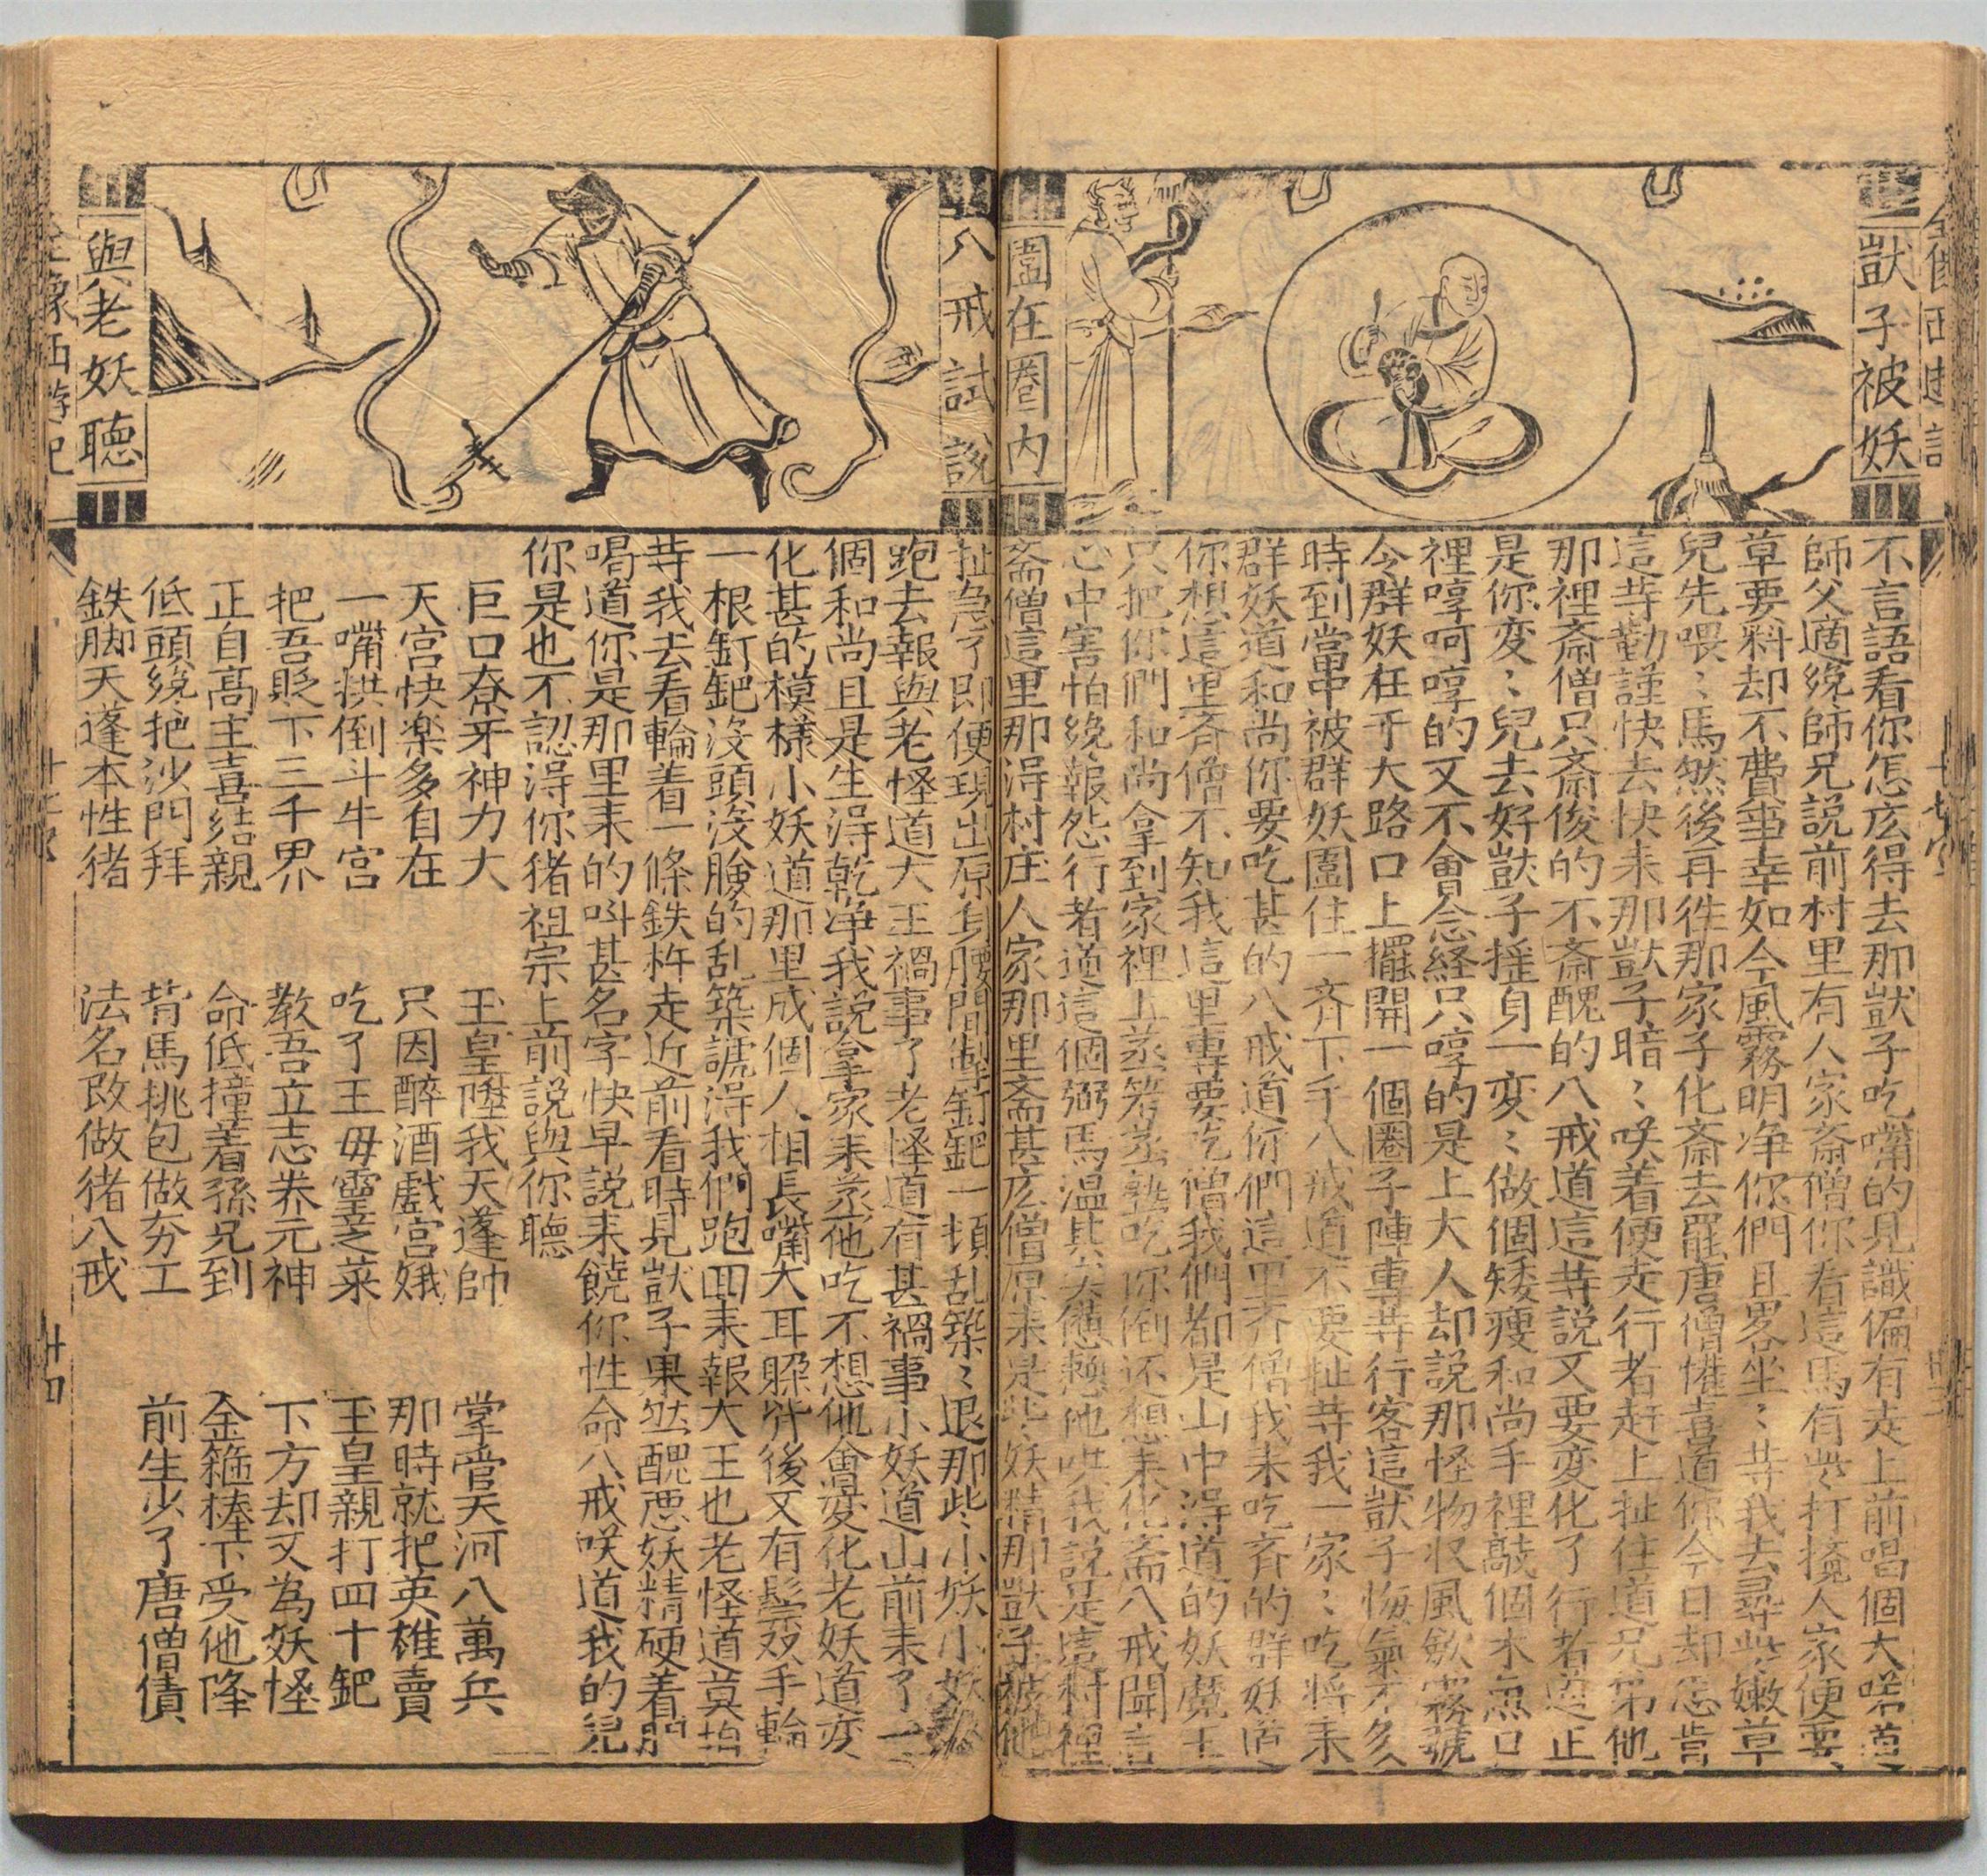 獃子被妖
圍在圈內
不言語看你怎広得去那獃子吃嘴的見識偏有走上前唱個大喏道
師父適纔師兄説前村里有人家斎僧你看這馬有些打攪人家便要
草要料却不費事幸如今風霧明净你們且畧坐〻等我去尋些嫩草
兒先喂〻馬然後再徃那家子化斎去罷唐僧懽喜道你今日却怎肯
這䓁勤謹快去快来那獃子暗〻咲着便走行者赶上扯住道兄弟他
那裡斎僧只斎俊的不斎醜的八戒道這䓁説又要変化了行者道正
是你変〻兒去好獃子揺身一変〻做個矮瘦和尚手裡敲個木魚口
裡哼呵哼的又不會念経只哼的是上大人却説那怪物収風歛霧號
令群妖在于大路口上擺開一個圈子陣專䓁行客這獃子悔氣不多
時到當中被群妖圍住一齐下手八戒道不要扯䓁我一家〻吃將来
群妖道和尚你要吃甚的八戒道你們這里齐僧我来吃斉的群妖道
你想這里斉僧不知我這里專要吃僧我們都是山中淂道的妖魔王
只把你們和尚拿到家裡上蒸笼蒸熟吃你倒还想来化斎八戒聞言
心中害怕纔報怨行者道這個弼馬温其实憊懶他哄我説是這村裡
斎僧這里那淂村庄人家那里斎甚広僧原来是些妖精那獃子被他
八戒試説
與老妖聽
扯急了即便現出原身腰間掣釘鈀一頓乱築〻退那些小妖小妖
跑去報與老怪道大王禍事了老怪道有甚禍事小妖道山前来了一
個和尚且是生淂乾净我説拿家来蒸他吃不想他會変化老妖道変
化甚的模樣小妖道那里成個人相長嘴大耳躱背後又有鬃双手輪
一根釘鈀沒頭沒臉的乱築諕淂我們跑囬来報大王也老怪道莫怕
䓁我去看輪着一條鉄杵走近前看時見獃子果然醜惡妖精硬着胆
喝道你是那里来的叫甚名字快早説来饒你性命八戒咲道我的兒
你是也不認淂你猪祖宗上前説與你聽
巨口獠牙神力大　玉皇陞我天蓬帥　掌管天河八萬兵
天宮快楽多自在　只因醉酒戲宮娥　那時就把英雄賣
一嘴拱倒斗牛宮　吃了王母靈芝菜　玉皇親打四十鈀
把吾貶下三千界　教吾立志养元神　下方却又為妖怪
正自髙主喜結親　命低撞着孫兄到　金箍棒下受他降
低頭纔把沙門拜　背馬挑包做夯工　前生少了唐僧債
鉄脚天蓬本性猪　法名改做猪八戒